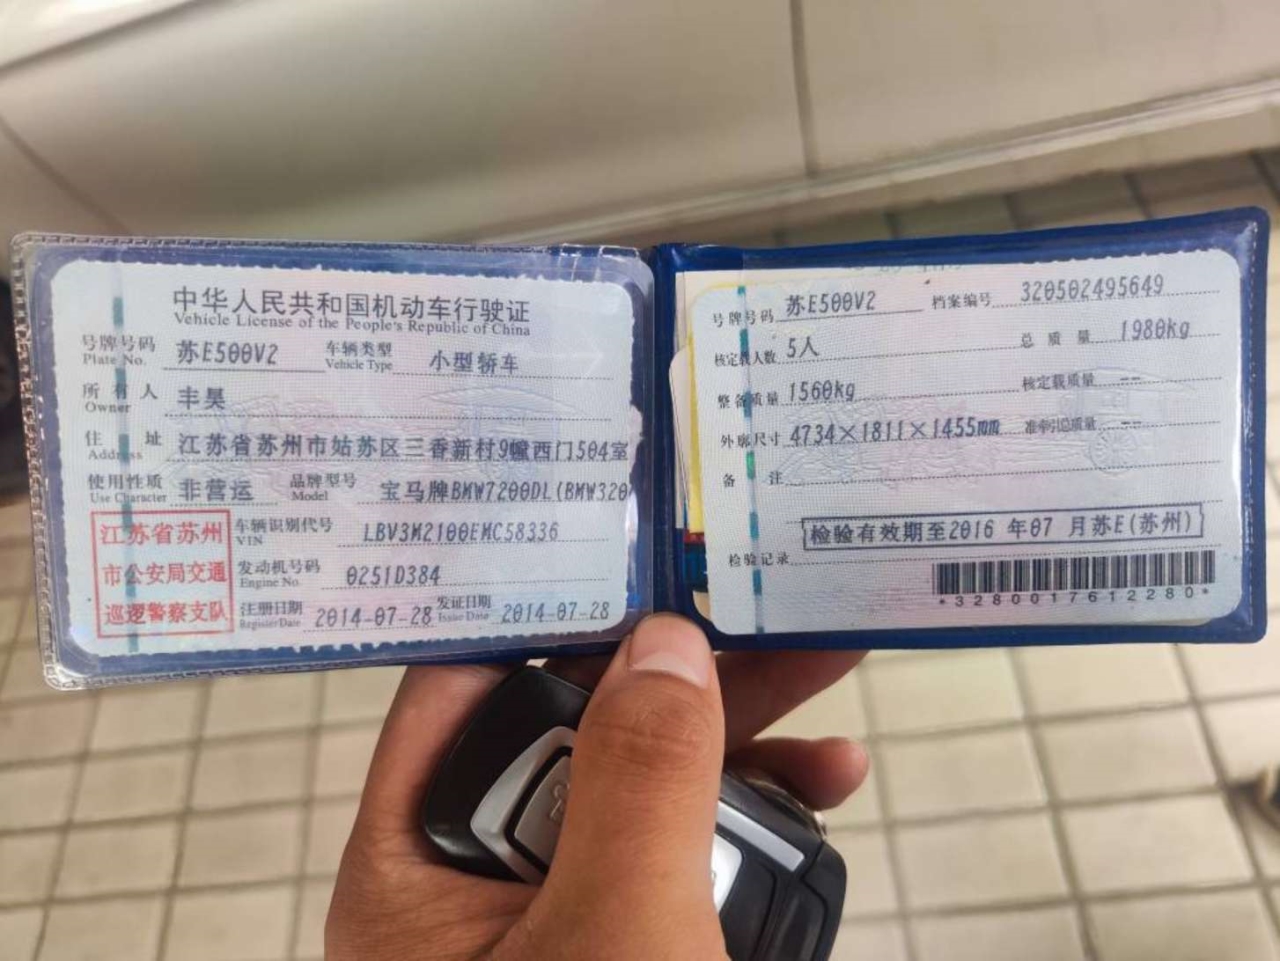 中华人民共和国机动车行驶证
Vehicle License of the People's Republic of China
号牌号码 苏E500V2 车辆类型 小型轿车
Plate No. Vehicle Type
所有人 丰昊
Owner
住址 江苏省苏州市姑苏区三香新村9幢西门504室
Address
使用性质 非营运 品牌型号 宝马牌BMW7200DL(BMW320
Use Character Model
江苏省苏州
市公安局交通
巡逻警察支队
车辆识别代号 LBV3M2100EMC58336
VIN
发动机号码 0251D384
Engine No.
注册日期 2014-07-28 发证日期 2014-07-28
Register Date Issue Date
号牌号码 苏E500V2 档案编号 320502495649
核定载人数 5人 总质量 1980kg
整备质量 1560kg 核定载质量 --
外廓尺寸 4734×1811×1455mm 准牵引总质量 --
备注
检验有效期至2016年07月苏E(苏州)
检验记录
*3280017612280*